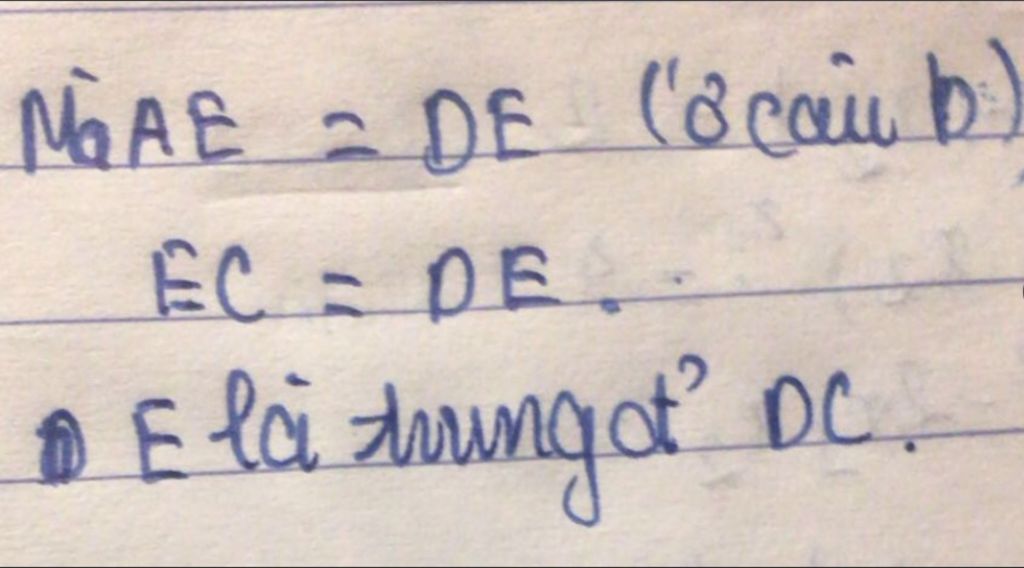 Mà AE = DE (ở câu b)
EC = DE.
E là trung đ' DC.